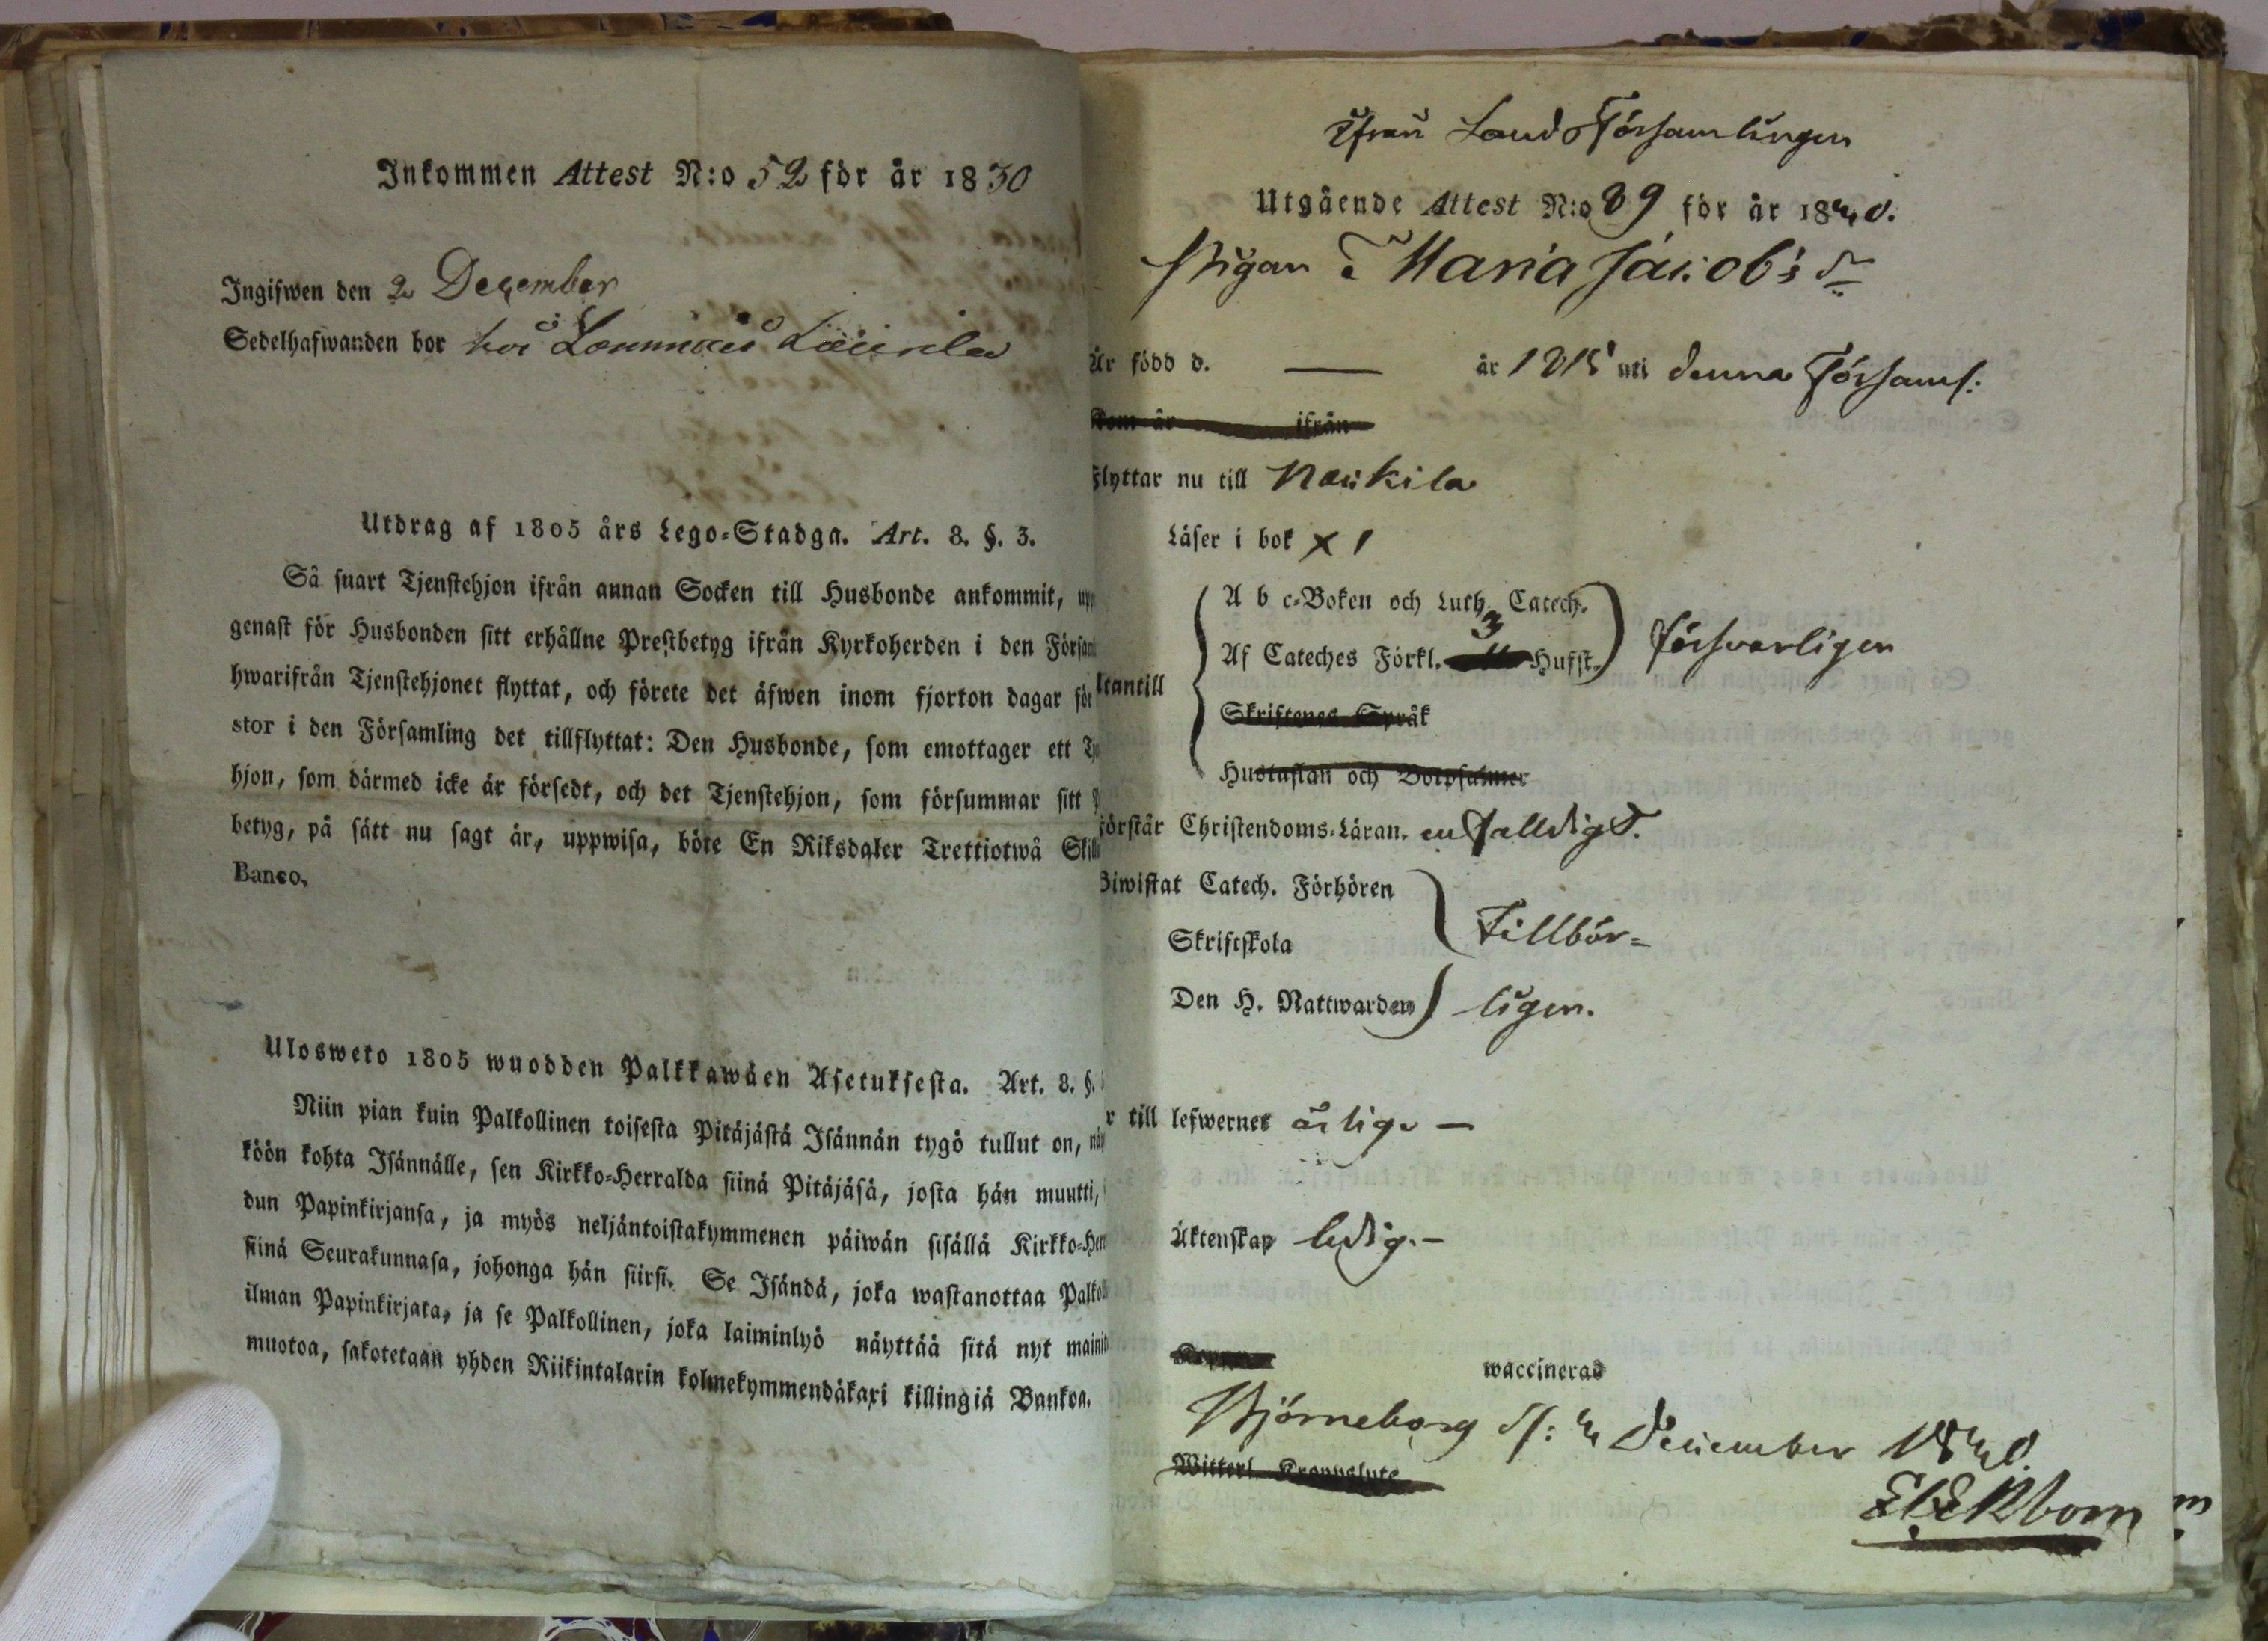 Inkommen Attest N:o 52 för år 1830
Ingifwen den 2 December
Sedelhafwanden bor hos
Utdrag af 1805 års Lego-Stadga. Art. 8. §. 3.
Så snart Tjenstehjon ifrån annan Socken till Husbonde ankommit, upp
genast för Husbonden sitt erhållne Prestbetyg ifrån Kyrkoherden i den Försam
hwarifrån Tjenstehjonet flyttat, och förete det äfwen inom fjorton dagar för
stor i den Församling det tillflyttat: Den Husbonde, som emottager ett Tj
hjon, som därmed icke är försedt, och det Tjenstehjon, som försummar sitt
betyg, på sätt nu sagt är, uppwisa, böte En Riksdaler Trettiotwå Skill
Banco.
Ulosweto 1805 wuodden Palkkawäen Asetuksesta. Art. 8. §.
Niin pian kuin Palkollinen toisesta Pitäjästä Isännän tygö tullut on, näy
köön kohta Isännälle, sen Kirkko-Herralda siinä Pitäjäsä, josta hän muutti,
dun Papinkirjansa, ja myös neljäntoistakymmenen päiwän sisällä Kirkko-Her
siinä Seurakunnasa, johonga hän siirsi. Se Isändä, joka wastanottaa Palkol
ilman Papinkirjata, ja se Palkollinen, joka laiminlyö näyttää sitä nyt mainit
muotoa, sakotetaan yhden Riikintalarin kolmekymmendäkaxi killingiä Bankoa.
Ifrån Lands Församlingen
Utgående Attest N:o 89 för år 1830.
Pigan Maria Jacobs dr
Är född d. — år 1815 uti denna Församl:
Kom år ifrån
Flyttar nu till Nakkila
Läser i bok x 1
A b c-Boken och Luth. Catech.
Af Cateches Förkl. 3 Hufst. försvarligen
Utantill
Skriftenes Språk
Hustaflan och Botpsalmer
Förstår Christendoms-Läran. enfalldigt.
Biwistat Catech. Förhören
Skriftskola Tillbör-
Den H. Nattwarden ligen.
r till lefwernet ärlig. —
Äktenskap ledig. —
waccinerad
Björneborg d: 2 December 1830.
Witterl. Krappslute
Ekbom